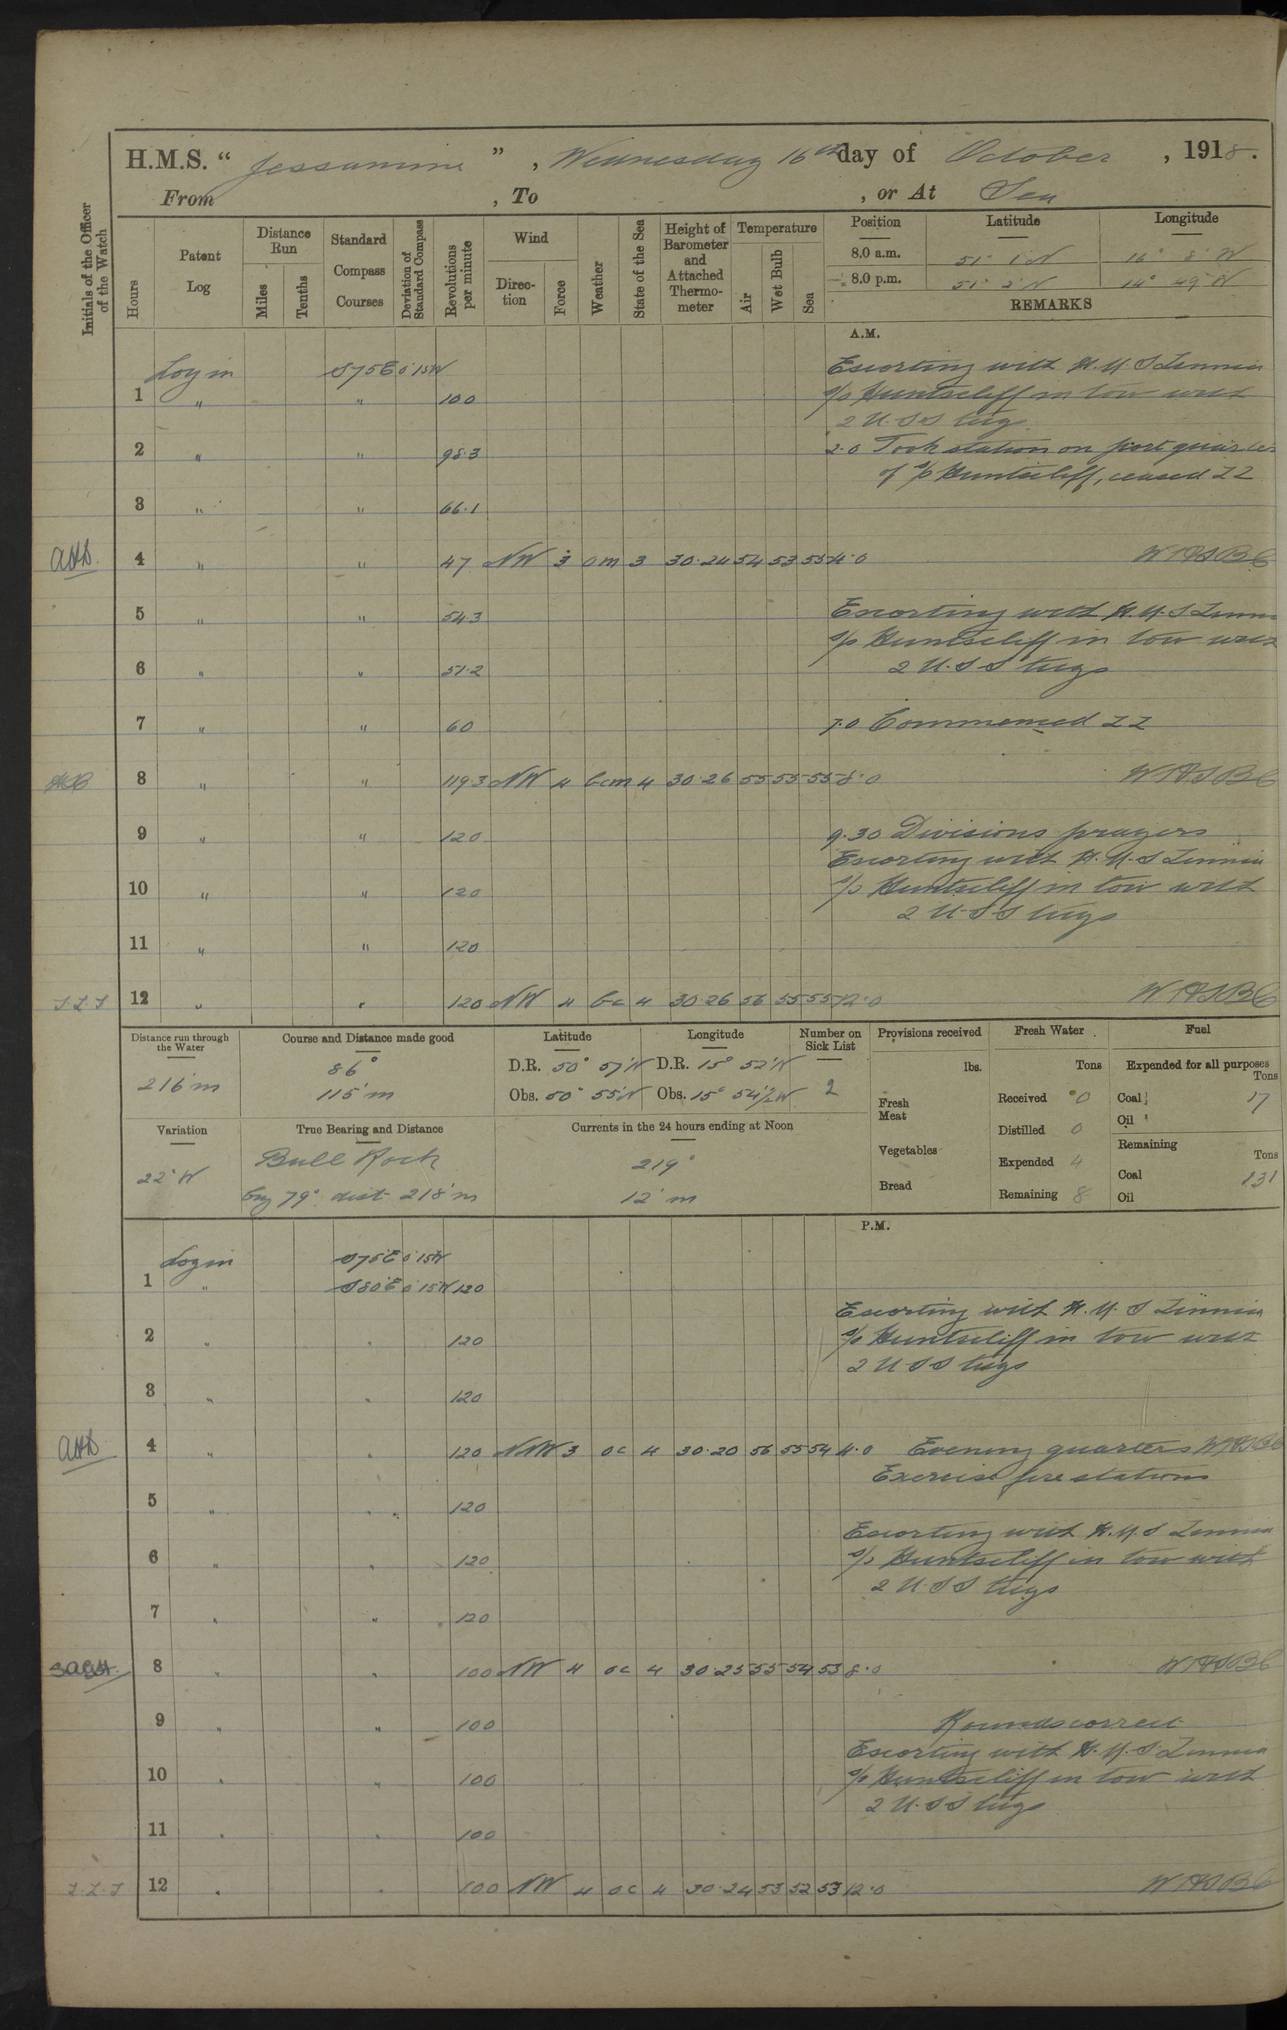 H.M.S. " Jessamine ", Wednesday 16th day of October, 1918.
From , To , or At Sea
Initials of the Officer of the Watch
Hours
Patent Log
Distance Run
Miles
Tenths
Standard Compass Courses
Deviation of Standard Compass
Revolutions per minute
Wind
Direction
Force
Weather
State of the Sea
Height of Barometer and Attached Thermometer
Temperature
Air
Wet Bulb
Sea
Position Latitude Longitude
8.0 a.m. 51° 1' N 16° 8' W
8.0 p.m. 51° 2' N 14° 49' W
REMARKS
A.M.
Log in S75E 0 15W Escorting with H.M.S Zinnia
1 " " 100 s/s Huntscliff in tow with
2 U.S.S tugs
2 " " 98.3 2.0 Took station on port quarter
of s/s Huntscliff, ceased ZZ
3 " " 66.1
4 " " 47 NW 3 om 3 30.24 54 53 55 4.0 WHSBC
5 " " 54.3 Escorting with H.M.S Zinnia
s/s Huntscliff in tow with
6 " " 51.2 2 U.S.S tugs
7 " " 60 7.0 Commenced ZZ
8 " " 119.3 NW 4 bcm 4 30.26 55 55 55 8.0 WHSBC
9 " " 120 9.30 Divisions prayers
Escorting with H.M.S Zinnia
10 " " 120 s/s Huntscliff in tow with
2 U.S.S tugs
11 " " 120
12 " " 120 NW 4 bc 4 30.26 56 55 55 12.0 WHSBC
Distance run through the Water
216' m
Course and Distance made good
86°
115' m
Latitude
D.R. 50° 57' N
Obs. 50° 55' N
Longitude
D.R. 15° 52' W
Obs. 15° 54½' W
Number on Sick List
2
Provisions received
lbs.
Fresh Meat
Vegetables
Bread
Fresh Water
Tons
Received 0
Distilled 0
Expended 4
Remaining 8
Fuel
Expended for all purposes
Tons
Coal 17
Oil
Remaining
Tons
Coal 131
Oil
Variation
22° W
True Bearing and Distance
Bull Rock
brg 79° dist 218' m
Currents in the 24 hours ending at Noon
219°
12' m
P.M.
Log in S75E 0 15W
1 " S80E 0 15W 120
Escorting with H.M.S Zinnia
2 " " 120 s/s Huntscliff in tow with
2 U.S.S tugs
3 " " 120
4 " " 120 NNW 3 oc 4 30.20 56 55 54 4.0 Evening quarters WHSBC
Exercise fire stations
5 " " 120
Escorting with H.M.S Zinnia
6 " " 120 s/s Huntscliff in tow with
2 U.S.S tugs
7 " " 120
8 " " 100 NW 4 oc 4 30.25 55 54 53 8.0 WHSBC
9 " " 100 Rounds correct
Escorting with H.M.S Zinnia
10 " " 100 s/s Huntscliff in tow with
2 U.S.S tugs
11 " " 100
12 " " 100 NW 4 oc 4 30.24 53 52 53 12.0 WHSBC